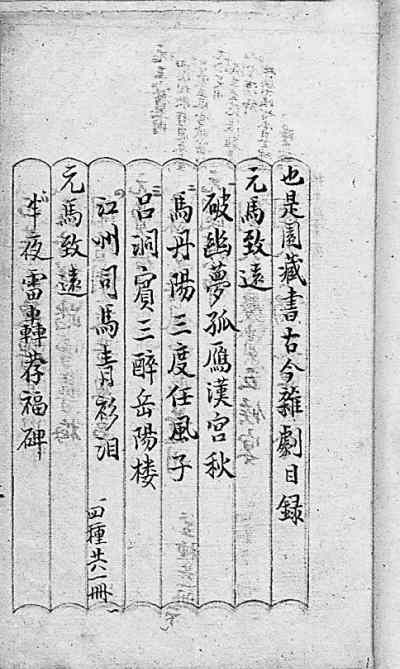 也是園藏書古今雜劇目録
元馬致遠
破幽夢孤鴈漢宮秋
馬丹陽三度任風子
呂洞賔三醉岳陽楼
江州司馬青衫泪
四種共一冊
元馬致遠
半夜雷轟荐福碑